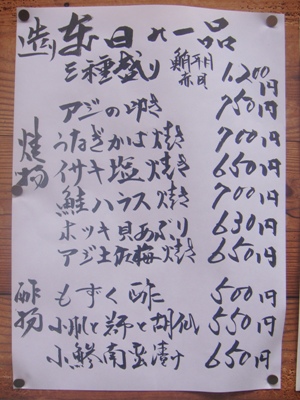 本日の一品
造り
三種盛り 鮪 平目 赤貝 1,200円
アジの叩き 750円
焼物
うなぎかば焼き 700円
イサキ塩焼き 650円
鮭ハラス焼き 700円
ホッキ貝あぶり 630円
アジ土佐梅焼き 650円
酢物
もずく酢 500円
小肌と 550円
小鰺南蛮漬け 650円